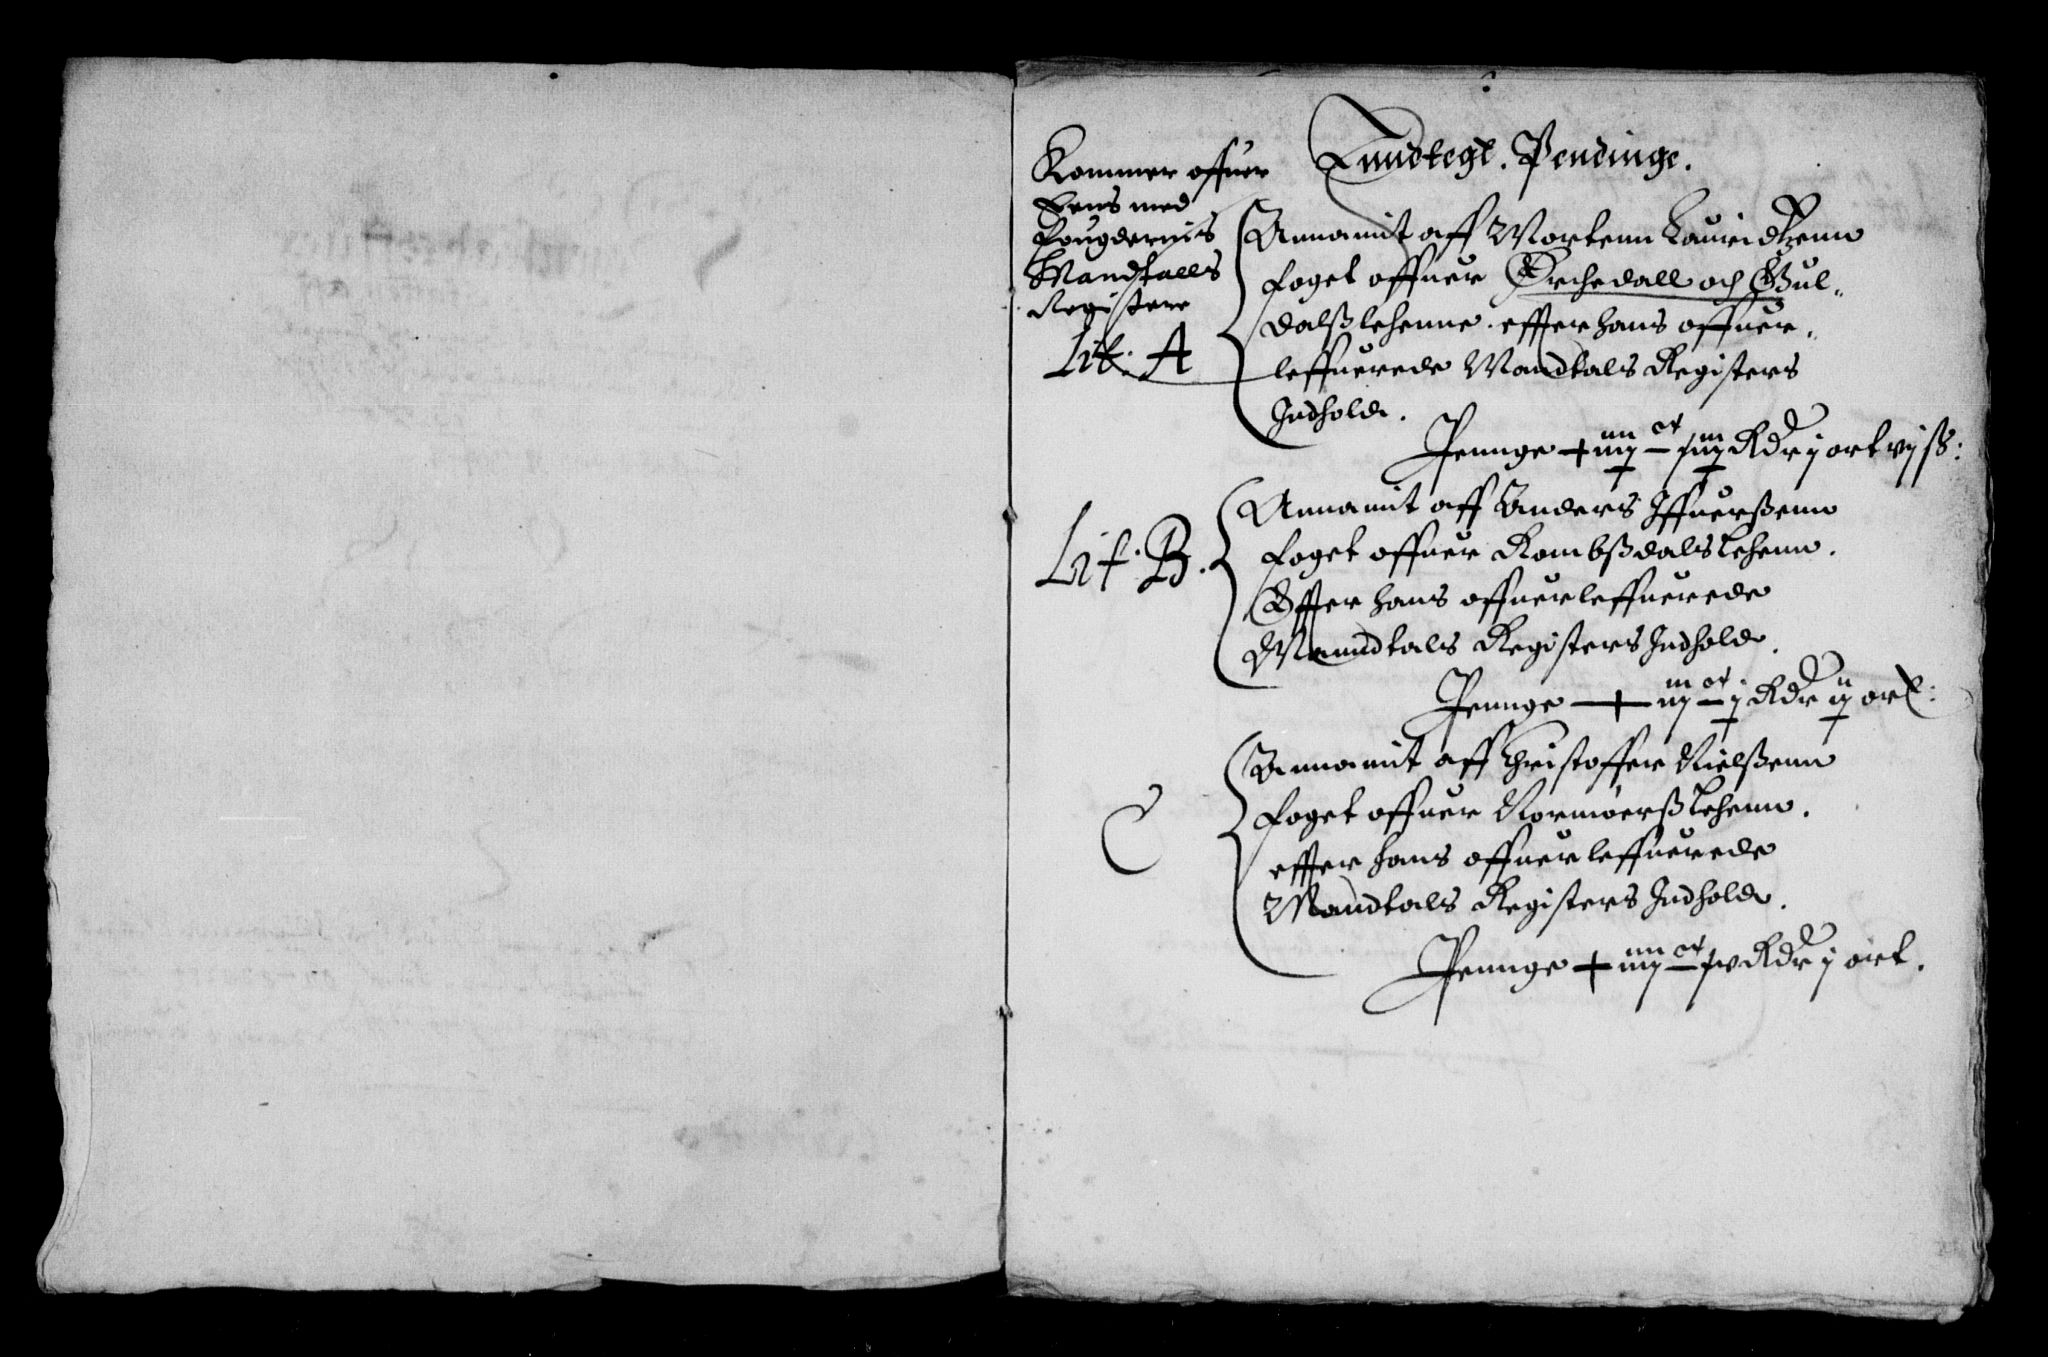 Indtegt. Pendinge.
Kommer offuer
Eens med
Fougdernis
Mandtalls
Registere
Lit: A
Annamit aff Mortenn Lauridtzenn
foget offuer Örchedall och Gul-
dalß lehenne. effter hans offuer-
leffuerede Mandtals Registers
Indhold.
Penge
Rdr j ort vj ß:
Lit: B.
Annamit aff Anders Iffuerßenn
foget offuer Rombßdals Lehenn.
Effter hans offuerleffuerede
Manndtals Registers Indhold.
Penge
Rdr ij ort:
C
Annamit aff Christoffer Nielßenn
foget offuer Normöerß Lehenn.
effter hans offuerleffuerede
Mandtals Registers Indhold.
Penge
Rdr j ort.